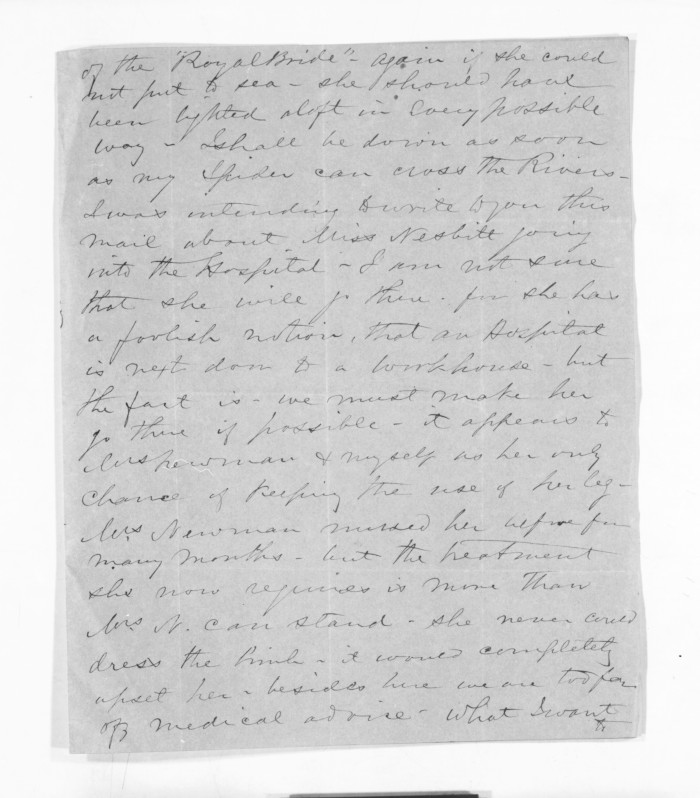 of the "Royal Bride" - again if she could
not put to sea - she should have
been lighted aloft in every possible
way - I shall be down as soon
as my Spider can cross the Rivers -
I was intending to write to you this
mail about Miss Nesbitt going
into the Hospital - I am not sure
that she will go there - for she has
a foolish notion, that an Hospital
is next door to a workhouse - but
the fact is - we must make her
go there if possible - it appears to
Mrs Newman & myself as her only
chance of keeping the use of her leg -
Mrs Newman nursed her before for
many months - but the treatment
she now requires is more than
Mrs N. can stand - she never could
dress the limb - it would completely
upset her - besides here we are too far
off medical advise - What I want
to